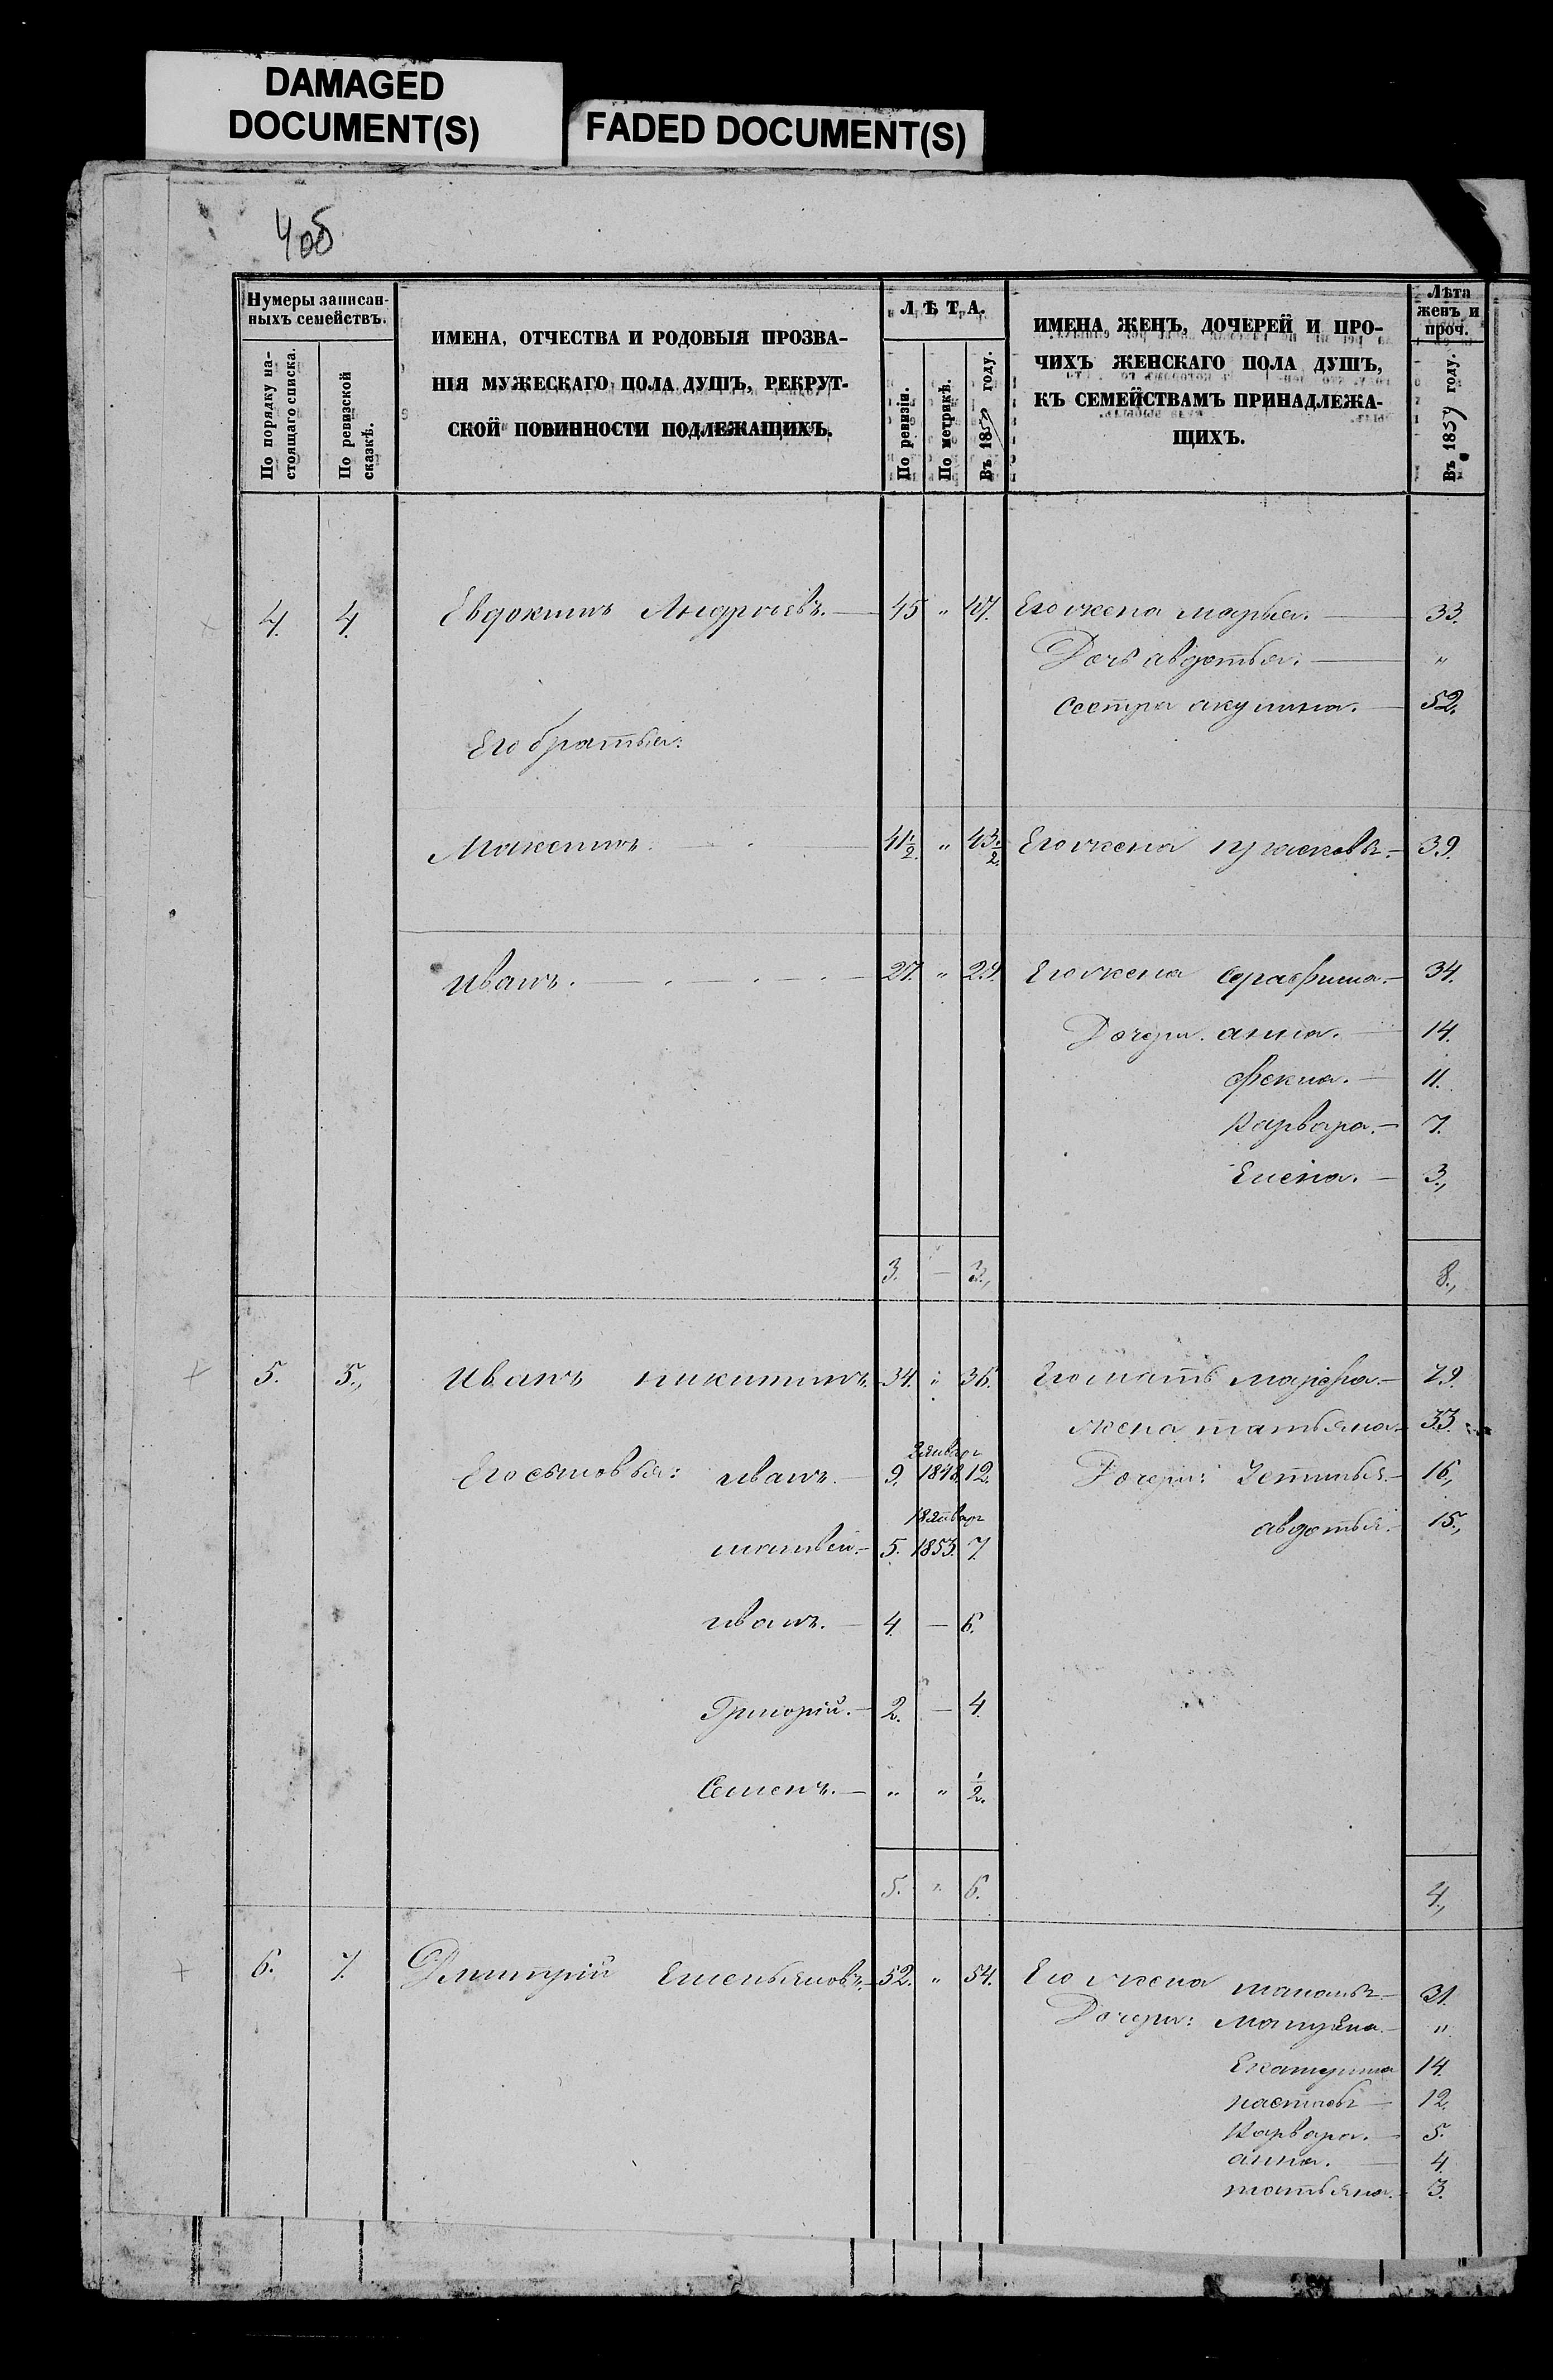 DAMAGED
DOCUMENT(S)
FADED DOCUMENT(S)
4об
Нумеры записан-
ныхъ семействъ.
По порядку на-
стоящаго списка.
По ревизской
сказкѣ.
ИМЕНА, ОТЧЕСТВА И РОДОВЫЯ ПРОЗВА-
НІЯ МУЖЕСКАГО ПОЛА ДУШЪ, РЕКРУТ-
СКОЙ ПОВИННОСТИ ПОДЛЕЖАЩИХЪ.
ЛѢТА.
По ревизіи.
По метрикѣ.
Въ 185 году.
ИМЕНА ЖЕНЪ, ДОЧЕРЕЙ И ПРО-
ЧИХЪ ЖЕНСКАГО ПОЛА ДУШЪ,
КЪ СЕМЕЙСТВАМЪ ПРИНАДЛЕЖА-
ЩИХЪ.
Лѣта
женъ и
проч.
Въ 1859 году.
4. 4. Евдокимъ Андреевъ. — 45 " 47. Его жена марья. — 33.
Дочь авдотья. — "
сестра акулина. — 52.
Его братья:
Максимъ. — 41 1/2. " 43 1/2. Его жена прасковья. — 39.
иванъ. — 27. " 29. Его жена Серафима. — 34.
Дочери. анна. — 14.
фекла. — 11.
Варвара. — 7.
Елена. — 3.,
3. — 3., 8.,
5. 5., Иванъ никитинъ. 34. " 36. Его мать марфа. — 79.
жена татьяна. 33.
Его сыновья: иванъ. — 9. 2 январ 1848. 12. Дочери: Устинья. — 16.,
матвей. — 5. 18 январ 1853. 7. авдотья. — 15.,
иванъ. — 4. — 6.
Григорій. — 2. — 4.
Семенъ. — " " 1/2.
5. " 6. 4.,
6. 7. Дмитрій Емельяновъ. 52. " 54. Его жена 31.
Дочери: Матрена. — "
Екатерина 14.
настась — 12.
Варвара. — 5.
анна. — 4.
татьяна. 3.